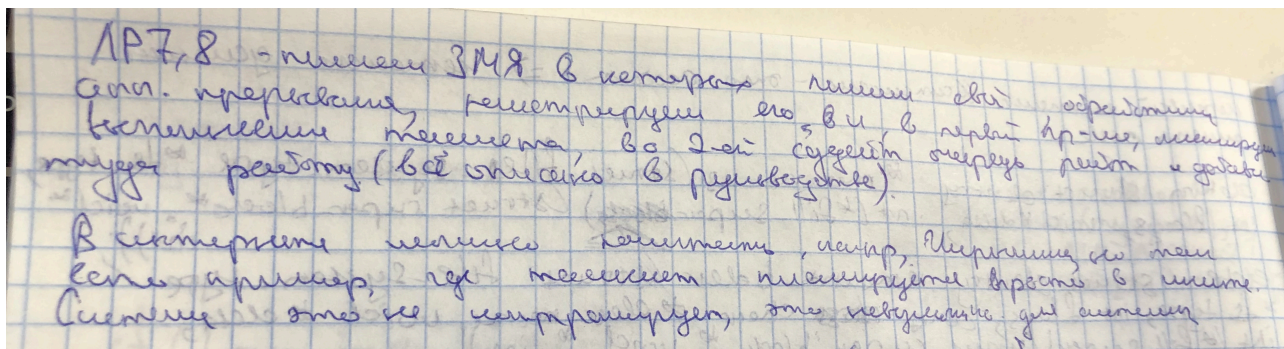 ЛР 7,8 - пишем ЗМЯ в которых пишем свой обработчик
апп. прерывания, регистрируем его, и, в первой пр-ме, планируем
выполнение тасклета, во 2-ой создаёт очередь работ и добавл
туда работу (всё описано в руководстве).
В интернете можно почитать, напр, но там
есть пример, где тасклет планируется просто в ините.
Система это не контролирует, это для системы